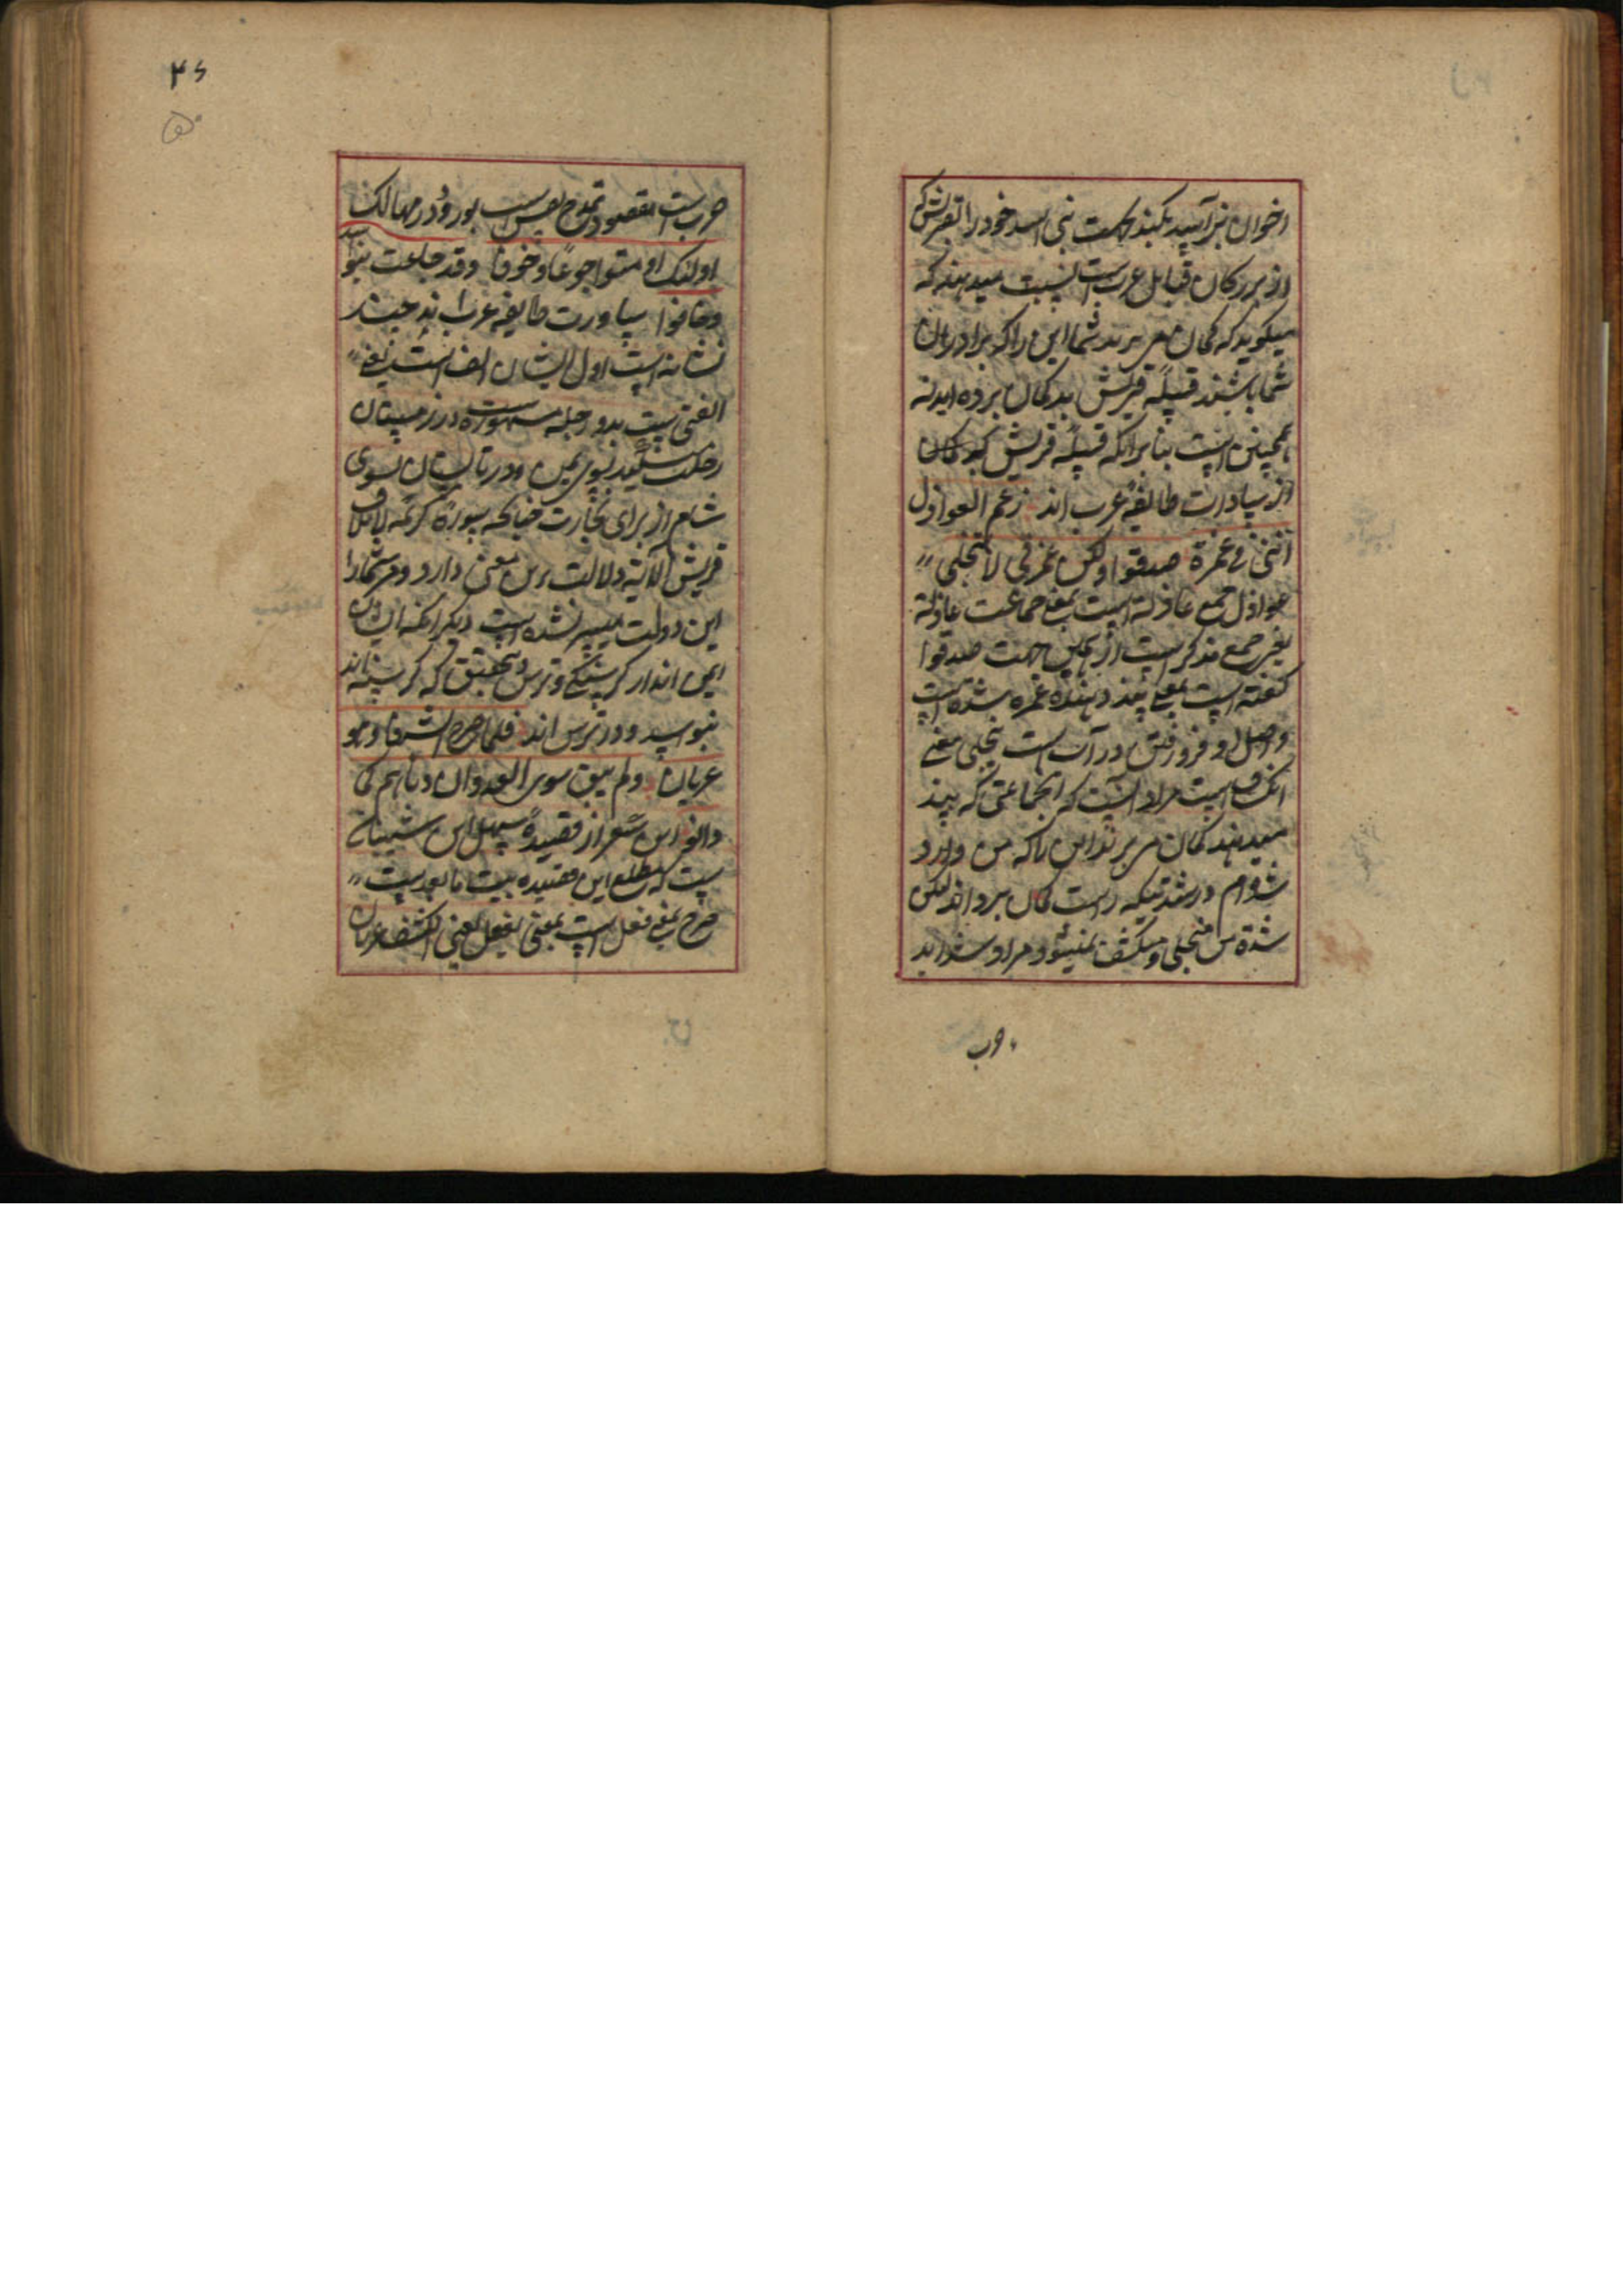 اخوان نیز آسید بکنید بنی اسد خود را بقریش که
از بزرکان قبایل عرب است نسبت میدهند که
میکوید که کمان می برند شما این را که برادران
شما باشند قبیله قریش بد کمان برده اید نه
همچنین است بنابر انکه قبیله قریش که کان
از سادات طایفه عرب اند زعم العواذل
اننی فی غمرة صدقوا ولکن غمرتی لا تنجلی
عواذل جمع عاذله است بمعنی جماعت عاذلة
یعنی جمع مذکر است از همین جهت صدقوا
کفته است بمعنی پند دهنده غمره شدة است
و اصل او فرو رفتن در آب است تنجلی بمعنی
انکشاف است مراد آنست که انجماعتی که پند
میدهند کمان می برند این را که من وارد
شده ام در شدتیکه راست کمان برده اند لیکن
شدة من منجلی و منکشف نمیشود و مراد شداید
حرب
۴۶
۵۰
حرب است مقصود تمدح نفس است بورود در مهالک
اولئک اومنوا جوعا و خوفا وقد جاعت بنو اسد
وخافوا سیاورت طایفه عرب اند چند
نشانه است اول ایشان الف است یعنی
الفتی است بدو رحله مشهوره در زمستان
رحلت میکنند بسوی یمن و در تابستان بسوی
شام از برای تجارت چنانکه سورة کریمه لایلاف
قریش الآیة دلالت برین معنی دارد و مر شما را
این دولت میسر نشده است دیکر انکه ایشان
ایمن اند از کرسنکی و ترس و بتحقیق که کرسنه اند
بنو اسد و در ترس اند فلما صرح الشر فامسی و هو
عریان ولم یبق سوی العدوان دناهم کما
دانوا این شعر از قصیدهٔ سهل ابن شیبان
ست که مطلع این قصیده بیت ما بعد است
صرح بمعنی فعل است بمعنی تفعل یعنی انکشف عریان